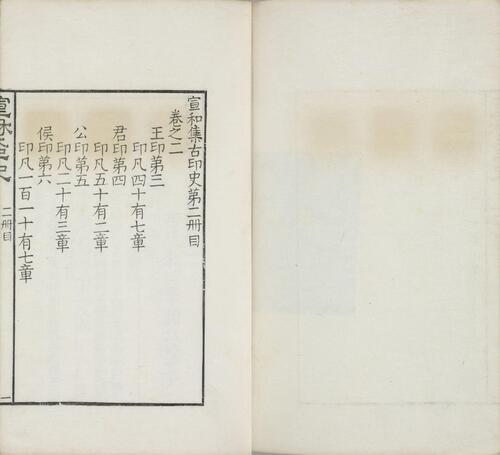 宣和集古印史第二冊目
卷之二
王印第三
印凡四十有七章
君印第四
印凡五十有二章
公印第五
印凡二十有三章
侯印第六
印凡一百一十有七章
二冊目
一